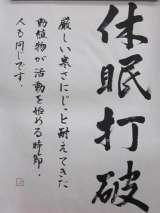 休眠打破
厳しい寒さにじっと耐えてきた
動植物が活動を始める時節・
人も同じです。